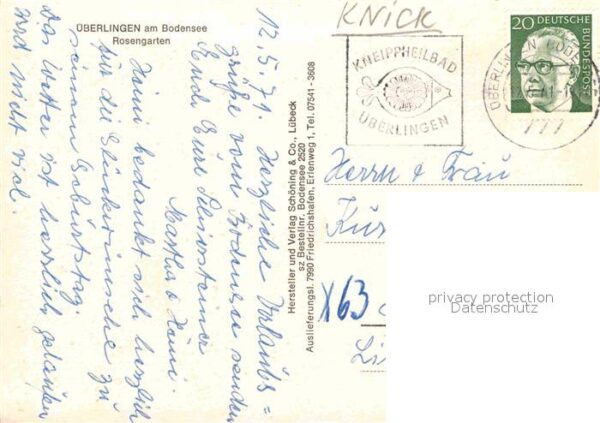 ÜBERLINGEN am Bodensee
Rosengarten
12.5.71. Herzliche Urlaubs=
grüße vom Bodensee senden
Euch Eure
Martha & Heini.
Heini bedankt sich herzlich
für die Glückwünsche zu
seinem Geburtstag.
Das Wetter ist herrlich
wird nicht viel.
Hersteller und Verlag Schöning & Co., Lübeck
sz Bestellnr. Bodensee 2520
Auslieferungsl. 7990 Friedrichshafen, Erlenweg 1, Tel. 07541-3608
KNICK
KNEIPPHEILBAD
ÜBERLINGEN
20 DEUTSCHE
BUNDESPOST
777
Herrn & Frau
X63
privacy protection
Datenschutz